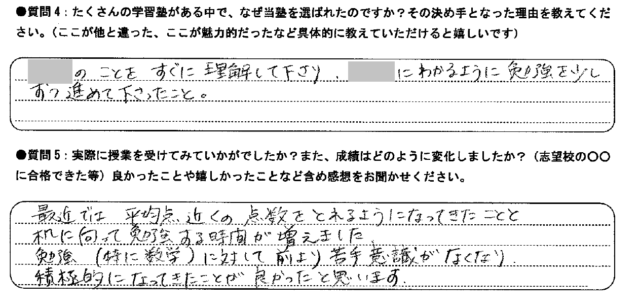 ●質問4：たくさんの学習塾がある中で、なぜ当塾を選ばれたのですか？その決め手となった理由を教えてくだ
さい。（ここが他と違った、ここが魅力的だったなど具体的に教えていただけると嬉しいです）
のことをすぐに理解して下さり、にわかるように勉強を少し
ずつ進めて下さったこと。
●質問5：実際に授業を受けてみていかがでしたか？また、成績はどのように変化しましたか？（志望校の〇〇
に合格できた等）良かったことや嬉しかったことなど含め感想をお聞かせください。
最近では平均点近くの点数をとれるようになってきたことと
机に向って勉強する時間が増えました。
勉強（特に数学）に対して前より苦手意識がなくなり
積極的になってきたことが良かったと思います。